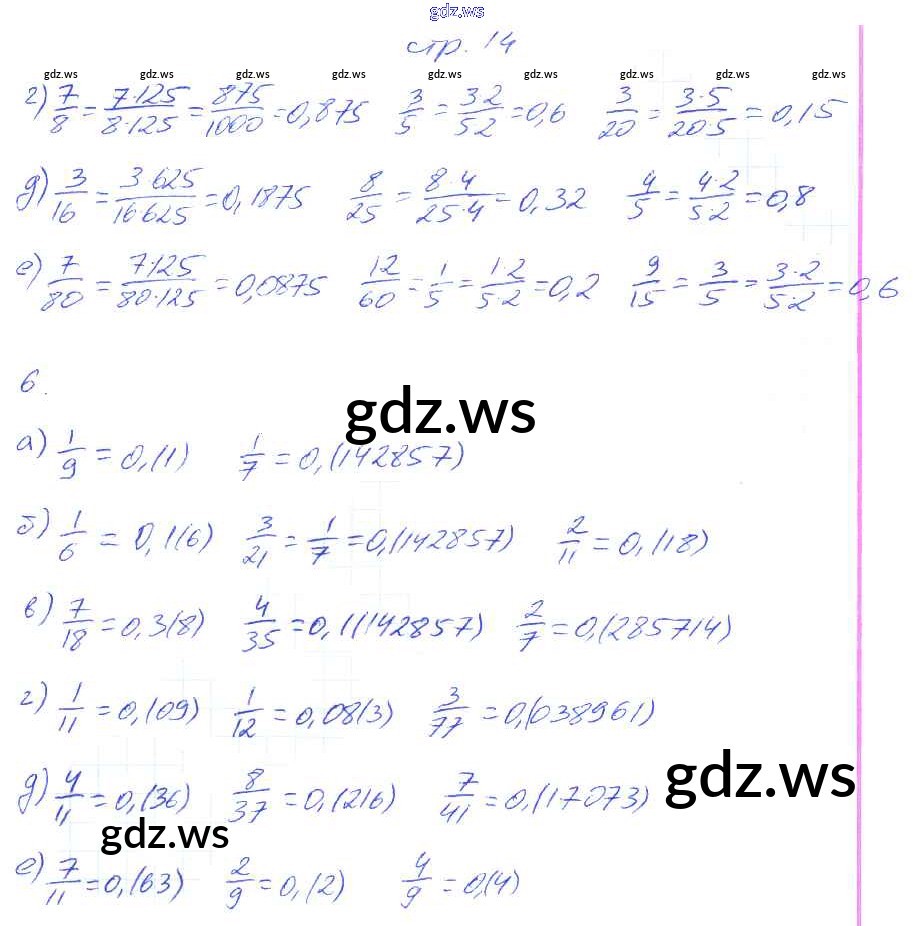 gdz.ws
стр. 14
gdz.ws gdz.ws gdz.ws gdz.ws gdz.ws gdz.ws gdz.ws gdz.ws
г) 7/8 = 7·125/8·125 = 875/1000 = 0,875 3/5 = 3·2/5·2 = 0,6 3/20 = 3·5/20·5 = 0,15
д) 3/16 = 3·625/16·625 = 0,1875 8/25 = 8·4/25·4 = 0,32 4/5 = 4·2/5·2 = 0,8
е) 7/80 = 7·125/80·125 = 0,0875 12/60 = 1/5 = 1·2/5·2 = 0,2 9/15 = 3/5 = 3·2/5·2 = 0,6
6.
gdz.ws
а) 1/9 = 0,(1) 1/7 = 0,(142857)
б) 1/6 = 0,1(6) 3/21 = 1/7 = 0,(142857) 2/11 = 0,(18)
в) 7/18 = 0,3(8) 4/35 = 0,1(142857) 2/7 = 0,(285714)
г) 1/11 = 0,(09) 1/12 = 0,08(3) 3/77 = 0,(038961)
д) 4/11 = 0,(36) 8/37 = 0,(216) 7/41 = 0,(17073)
gdz.ws
gdz.ws
е) 7/11 = 0,(63) 2/9 = 0,(2) 4/9 = 0,(4)